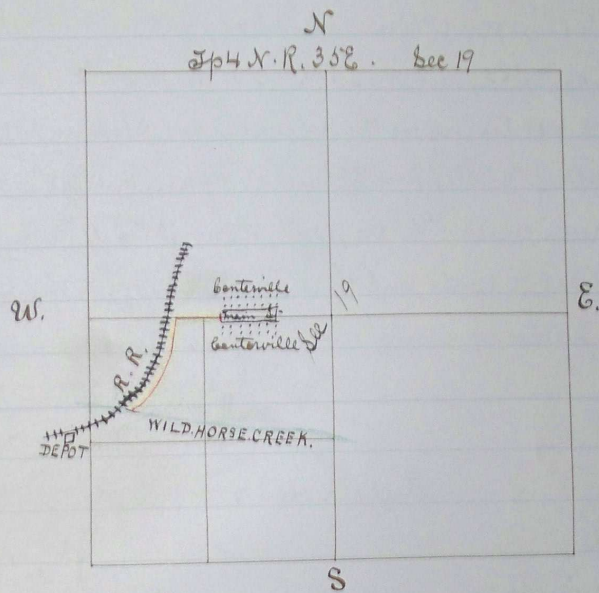 N
Tp 4 N. R. 35 E. Sec 19
W.
E.
Centerville
Main St.
Centerville
Sec 19
R. R.
WILD.HORSE.CREEK.
DEPOT
S